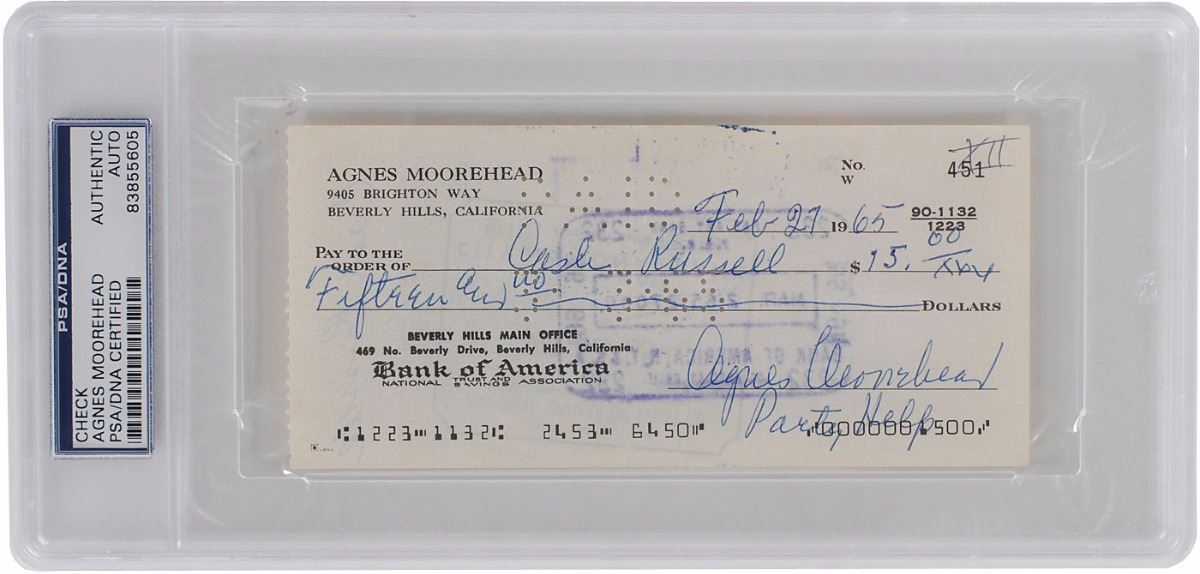 PSA/DNA
CHECK
AGNES MOOREHEAD
PSA/DNA CERTIFIED
AUTHENTIC
AUTO
83855605
AGNES MOOREHEAD
9405 BRIGHTON WAY
BEVERLY HILLS, CALIFORNIA
No.
W
451
XII
Feb 27 1965
90-1132
1223
PAY TO THE
ORDER OF Cash Russell $15. 00
Fifteen and no DOLLARS
BEVERLY HILLS MAIN OFFICE
469 No. Beverly Drive, Beverly Hills, California
Bank of America
NATIONAL TRUST AND SAVINGS ASSOCIATION
Agnes Moorehead
Party Help
1223 1132 2453 6450 0000001500